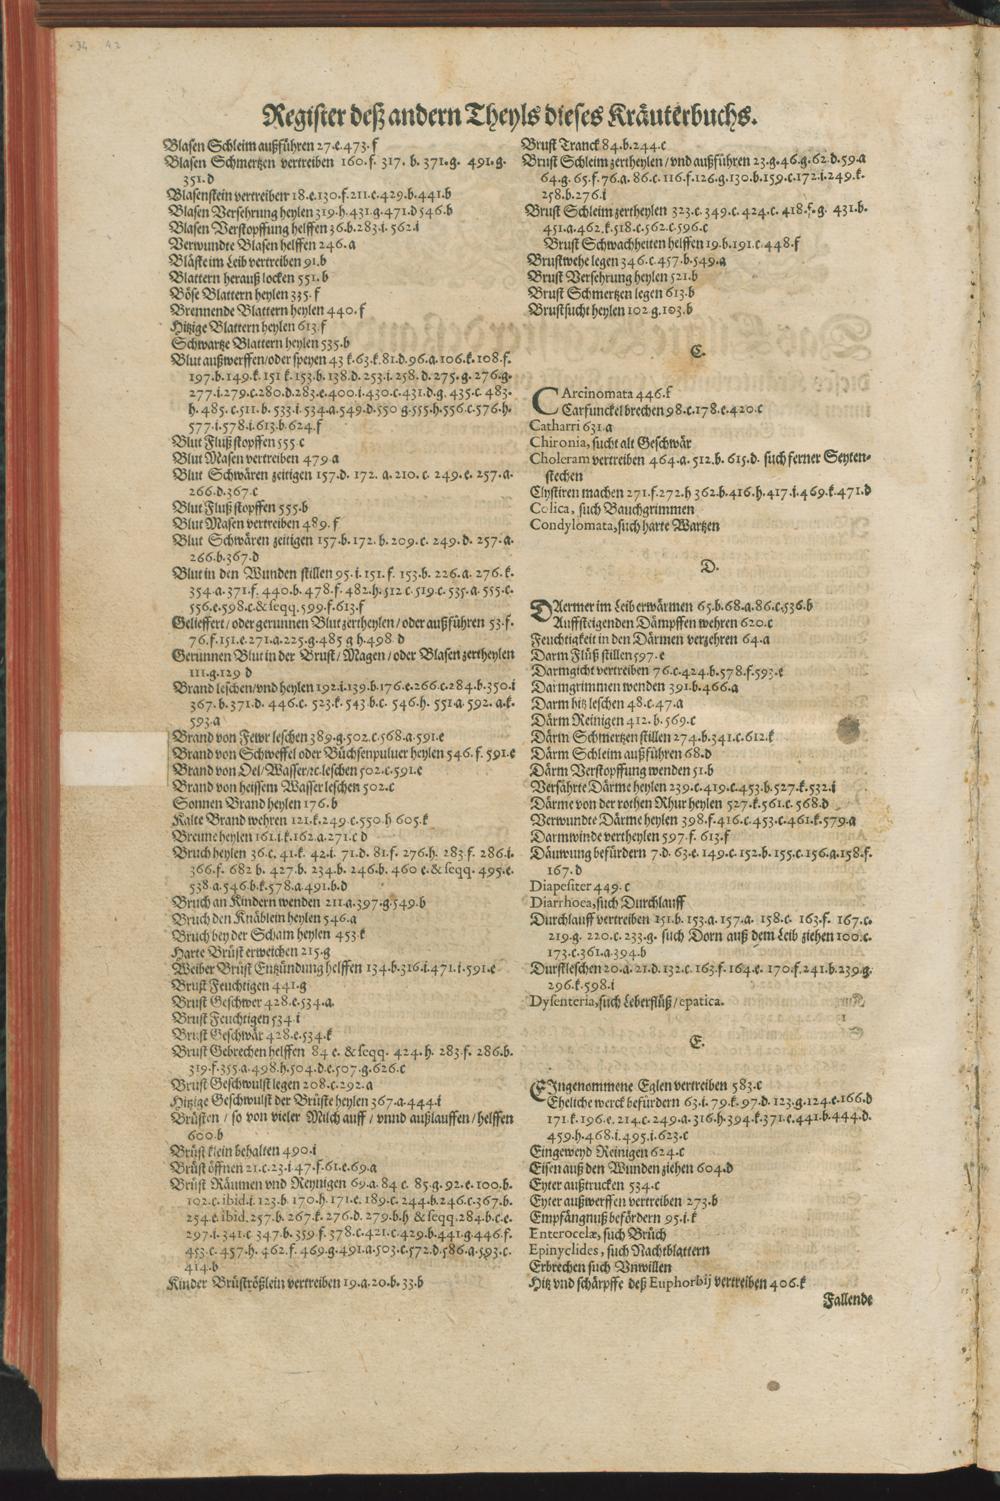 Register deß andern Theyls dieses Kräuterbuchs.
Blasen Schleim außführen 27.e.473.f
Blasen Schmertzen vertreiben 160.f. 317. b. 371.g. 491.g.
351.d
Blasenstein vertreibenr 18.e.130.f.211.c.429.b.441.b
Blasen Versehrung heylen 319.h.431.g.471.d 546.b
Blasen Verstopffung helffen 36.b.283.i. 562.i
Verwundte Blasen helffen 246.a
Bläste im Leib vertreiben 91.b
Blattern herauß locken 551.b
Böse Blattern heylen 335.f
Brennende Blattern heylen 440.f
Hitzige Blattern heylen 613.f
Schwartze Blattern heylen 535.b
Blut außwerffen/oder speyen 43 k.63.k.81.d.96.a.106.k.108.f.
197.b.149.k.151 k.153.b.138.d.253.i.258.d.275.g.276.g.
277.i.279.c.280.d.283.e.400.i.430.c.431.d.g.435.c 483.
h.485.c.511.b. 533.i.534.a.549.d.550 g.555.h.556.c.576.h.
577.i.578.i.613.b.624.f
Blut Fluß stopffen 555 c
Blut Masen vertreiben 479 a
Blut Schwären zeitigen 157.d. 172. a. 210. c. 249.e. 257.a.
266.d.367.c
Blut Fluß stopffen 555.b
Blut Masen vertreiben 489. f
Blut Schwären zeitigen 157.b. 172. b. 209.c. 249.d. 257.a.
266.b.367.d
Blut in den Wunden stillen 95.i.151.f. 153.b. 226.a. 276.k.
354.a.371.f. 440.b. 478.f. 482.h.512 c.519.c. 535.a.555.c.
556.e.598.c.& seqq. 599.f.613.f
Geliefert/ oder gerunnen Blut zertheylen/ oder außführen 53.f.
76.f.151.e.271.a.225.g.485 g h.498 d
Gerunnen Blut in der Brust/ Magen/ oder Blasen zertheylen
111.g.129 d
Brand leschen/vnd heylen 192.i.139.b.176.e.266.c.284.b.350.i
367.b.371.d. 446.c. 523.k.543 b.c. 546.h. 551 a. 592. a.k.
593.a
Brand von Fewr leschen 389.g.502.c.568.a.591.e
Brand von Schweffel oder Büchsenpuluer heylen 546.f. 591.e
Brand von Oel/Wasser/ꝛc.leschen 502.c.591.e
Brand von heissem Wasser leschen 502.c
Sonnen Brand heylen 176.b
Kalte Brand wehren 121.k.249.c.550 h 605.k
Breune heylen 161.i.k.162.a.271.c d
Bruch heylen 36.c. 41.k. 42.i. 71.d. 81.f. 276.h. 283.f. 286.i.
366.f. 682 b. 427.b. 234.b. 246.b. 460 e.& seqq. 495.e.
538.a.546.b.k.578.a.491.b.d
Bruch an Kindern wenden 211.a.397.g.549.b
Bruch den Knäblein heylen 546.a
Bruch bey der Scham heylen 453 k
Harte Brüst erweichen 215.g
Weiber Brüst Entzündung helffen 134.b.316.i.471.i.591.e
Brust Feuchtigen 441.g
Brust Geschwer 428.e.534.a.
Brust Feuchtigen 534 i
Brust Geschwär 428.e.534.k
Brust Gebrechen helffen 84 e. & seqq. 424.h. 283.f. 286.b.
319.f.355.a.498.h.504.d.e.507.g.626.c
Brust Geschwulst legen 208.c.292.a
Hitzige Geschwulst der Brüste heylen 367.a.444.i
Brüsten / so von vieler Milch auff / vnnd außlauffen/ helffen
600.b
Brüst klein behalten 490.i
Brüst öffnen 21.c.23.i 47.f.61.e.69.a
Brüst Räumen vnd Reynigen 69.a. 84 c. 85.g. 92.e. 100.b.
102.c.ibid.i. 123.b. 170.h. 171.e. 189.c. 244.b.246.c.367.b.
254.e.ibid.257.b.267.k.276.d.279.b.h & seqq.284.b.c.e.
297.i.341.c 347.b.359.f.378.c.421.c.429.b.441.g.446.f.
453.c.457.h. 462.f. 469.g.491.a.503.c.572.d.586.a.593.c.
414.b
Kinder Brüströßlein vertreiben 19.a.20.b.33.b
Brust Tranck 84.b.244.c
Brust Schleim zertheylen/ vnd außführen 23.g.46.g.62.d.59.a
64.g.65.f.76.a.86.c.116.f.126.g.130.b.159.c.172.i.249.k.
258.b.276.i
Brust Schleim zertheylen 323.c.349.c. 424.c. 418.f.g. 431.b.
451.a.462.k.518.c.562.c.596.c
Brust Schwachheiten helffen 19.b.191.c.448.f
Brustwehe legen 346.c.457.b.549.a
Brust Versehrung heylen 521.b
Brust Schmertzen legen 613.b
Brustsucht heylen 102 g.103.b
C.
CArcinomata 446.f
Carfunckel brechen 98.c.178.e.420.c
Catharri 631.a
Chironia, sucht alt Geschwär
Choleram vertreiben 464.a. 512.b. 615.d. such ferner Seyten-
stechen
Clystiren machen 271.f.272.h 362.b.416.h.417.i.469.k.471.d
Colica, such Bauchgrimmen
Condylomata, such harte Wartzen
D.
DAermer im Leib erwärmen 65.b.68.a.86.c.536.b
Auffsteigenden Dämpffen wehren 620.c
Feuchtigkeit in den Därmen verzehren 64.a
Darm Flüß stillen 597.e
Darmgicht vertreiben 76.c.424.b.578.f.593.e
Darmgrimmen wenden 391.b.466.a
Darm hitz leschen 48.c.47.a
Därm Reinigen 412. b. 569.c
Därm Schmertzen stillen 274.b.341.c.612.k
Därm Schleim außführen 68.d
Därm Verstopffung wenden 51.b
Versährte Därme heylen 239.c.419.c.453.b.527.k.532.i
Därme von der rothen Rhur heylen 527.k.561.c. 568.d
Verwundte Därme heylen 398.f.416.c.453.c.461.k.579.a
Darmwinde vertheylen 597.f. 613.f
Däuwung befürdern 7.d. 63.e. 149.c.152.b.155.c.156.a.158.f.
167.d
Diapesiter 449.c
Diarrhoea, such Durchlauff
Durchlauff vertreiben 151.b.153.a.157.a. 158.c. 163.f. 167.c.
219.g. 220.c.233.g. such Dorn auß dem Leib ziehen 100.c.
173.c.361.a.394.b
Durst leschen 20.a.21.d.132.c.163.f.164.e. 170.f.241.b.239.g.
296.k.598.i
Dysenteria, such Leberflüß/epatica.
E.
EIngenommene Eglen vertreiben 583.c
Eheliche werck befürdern 63.i.79.k.97.d.123.g.124.e.166.d
171.k.196.e.214.c.249.a.316.h.394.k.371.e.441.b.444.d.
459.h.468.i.495.i.623.c
Eingeweyd Reinigen 624.c
Eisen auß den Wunden ziehen 604.d
Eyter außtrucken 534.c
Eyter außwerffen vertreiben 273.b
Empfängnuß befördern 95.i.k
Enterocelæ, such Brüch
Epinyclides, such Nachtblattern
Erbrechen such Vnwillen
Hitz vnd schärpffe deß Euphorbij vertreiben 406.k
Fallende